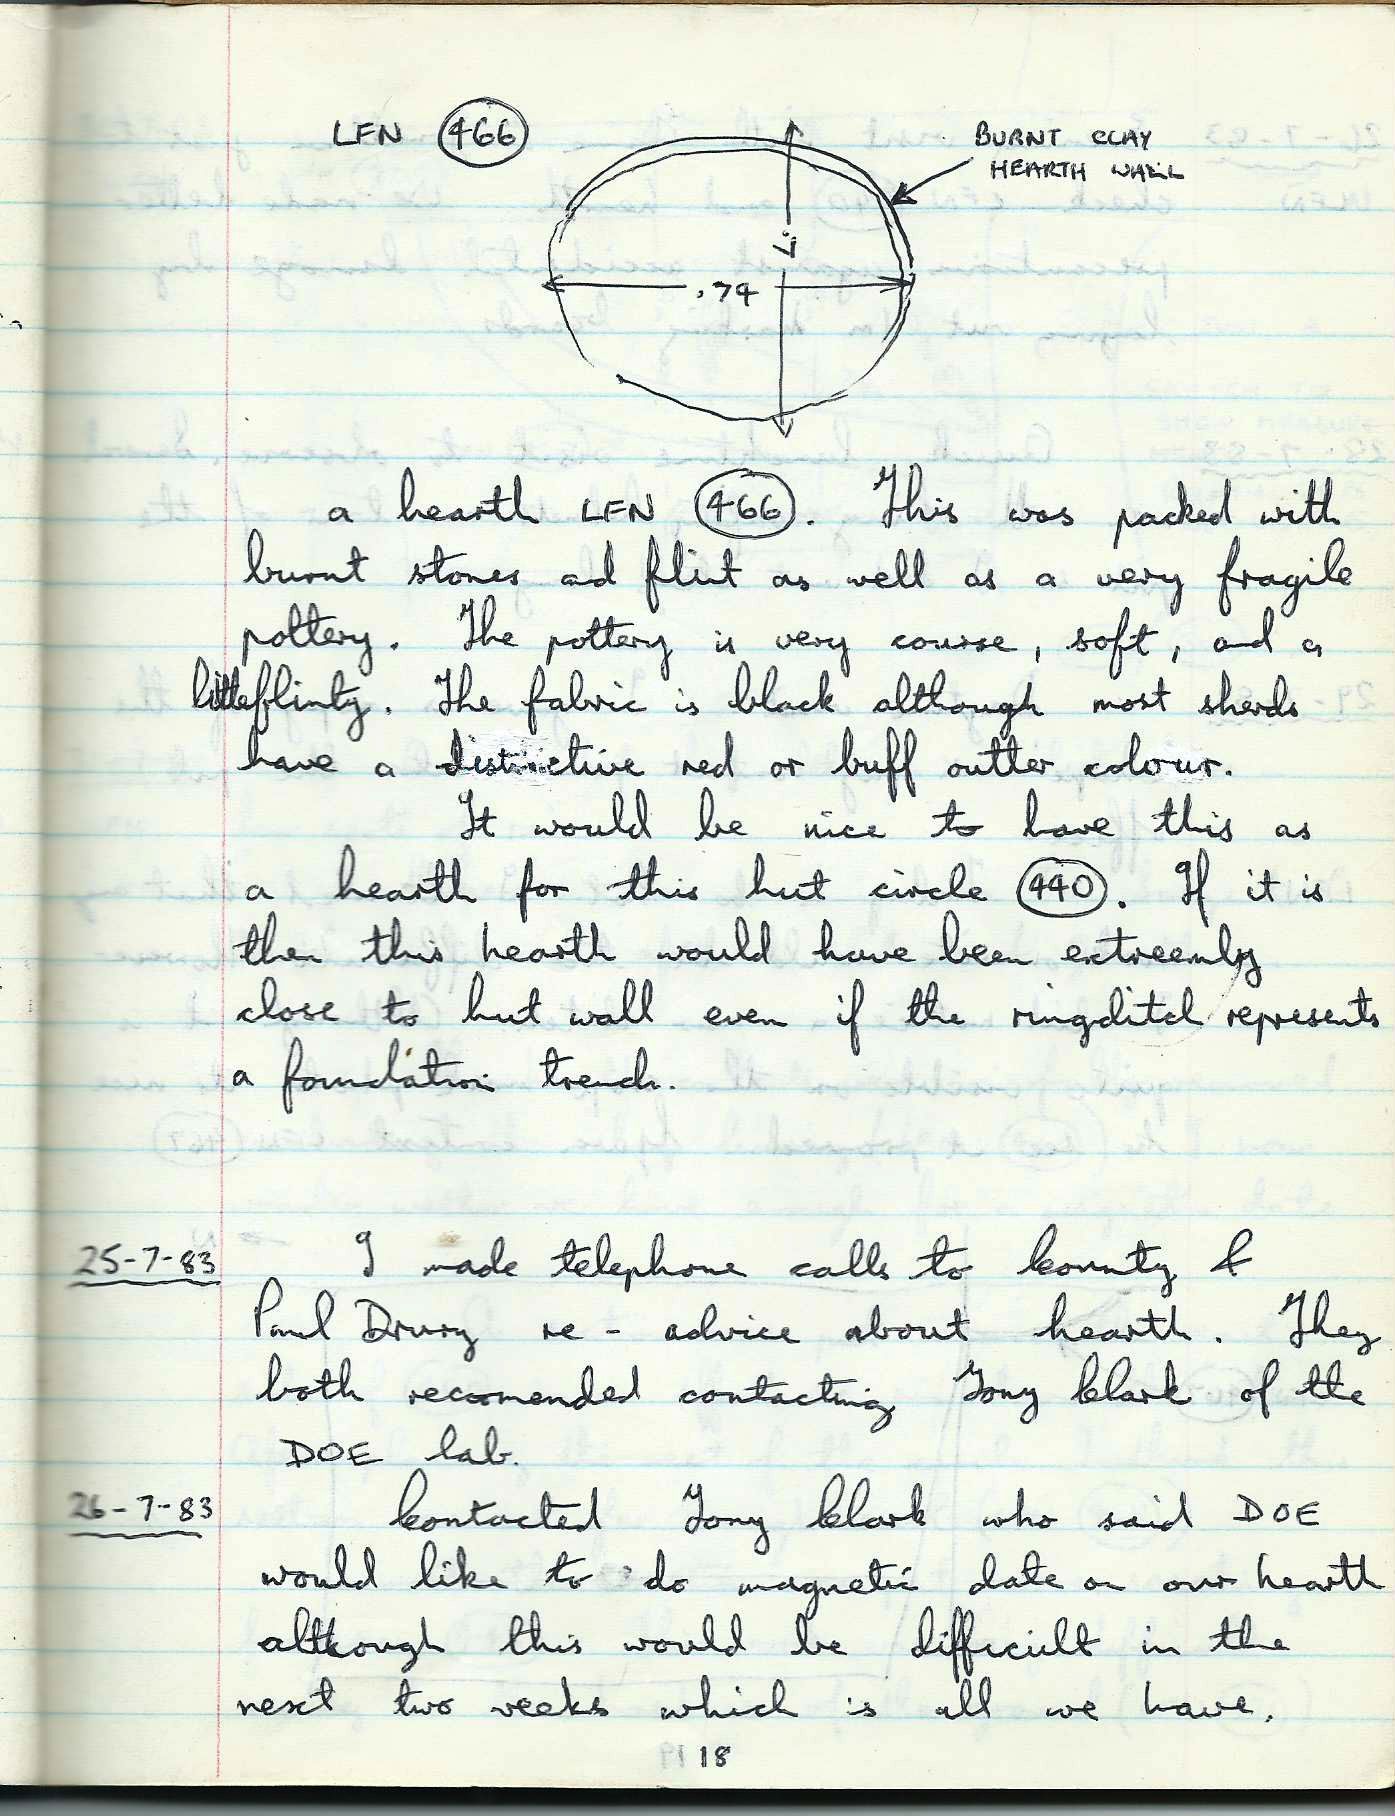 LFN 466
BURNT CLAY
HEARTH WALL
.74
a hearth LFN 466. This was packed with
burnt stones ad flint as well as a very fragile
pottery. The pottery is very course, soft, and a
little flinty. The fabric is black although most sherds
have a distinctive red or buff outter colour.
It would be nice to have this as
a hearth for this hut circle 440. If it is
then this hearth would have been extreemly
close to hut wall even if the ringditch represents
a foundation trench.
25-7-83 I made telephone calls to County &
Paul Drury re - advice about hearth. They
both recomended contacting Tony Clark of the
DOE lab.
26-7-83 Contacted Tony Clark who said DOE
would like to do magnetic date on our hearth
although this would be difficult in the
next two weeks which is all we have.
18